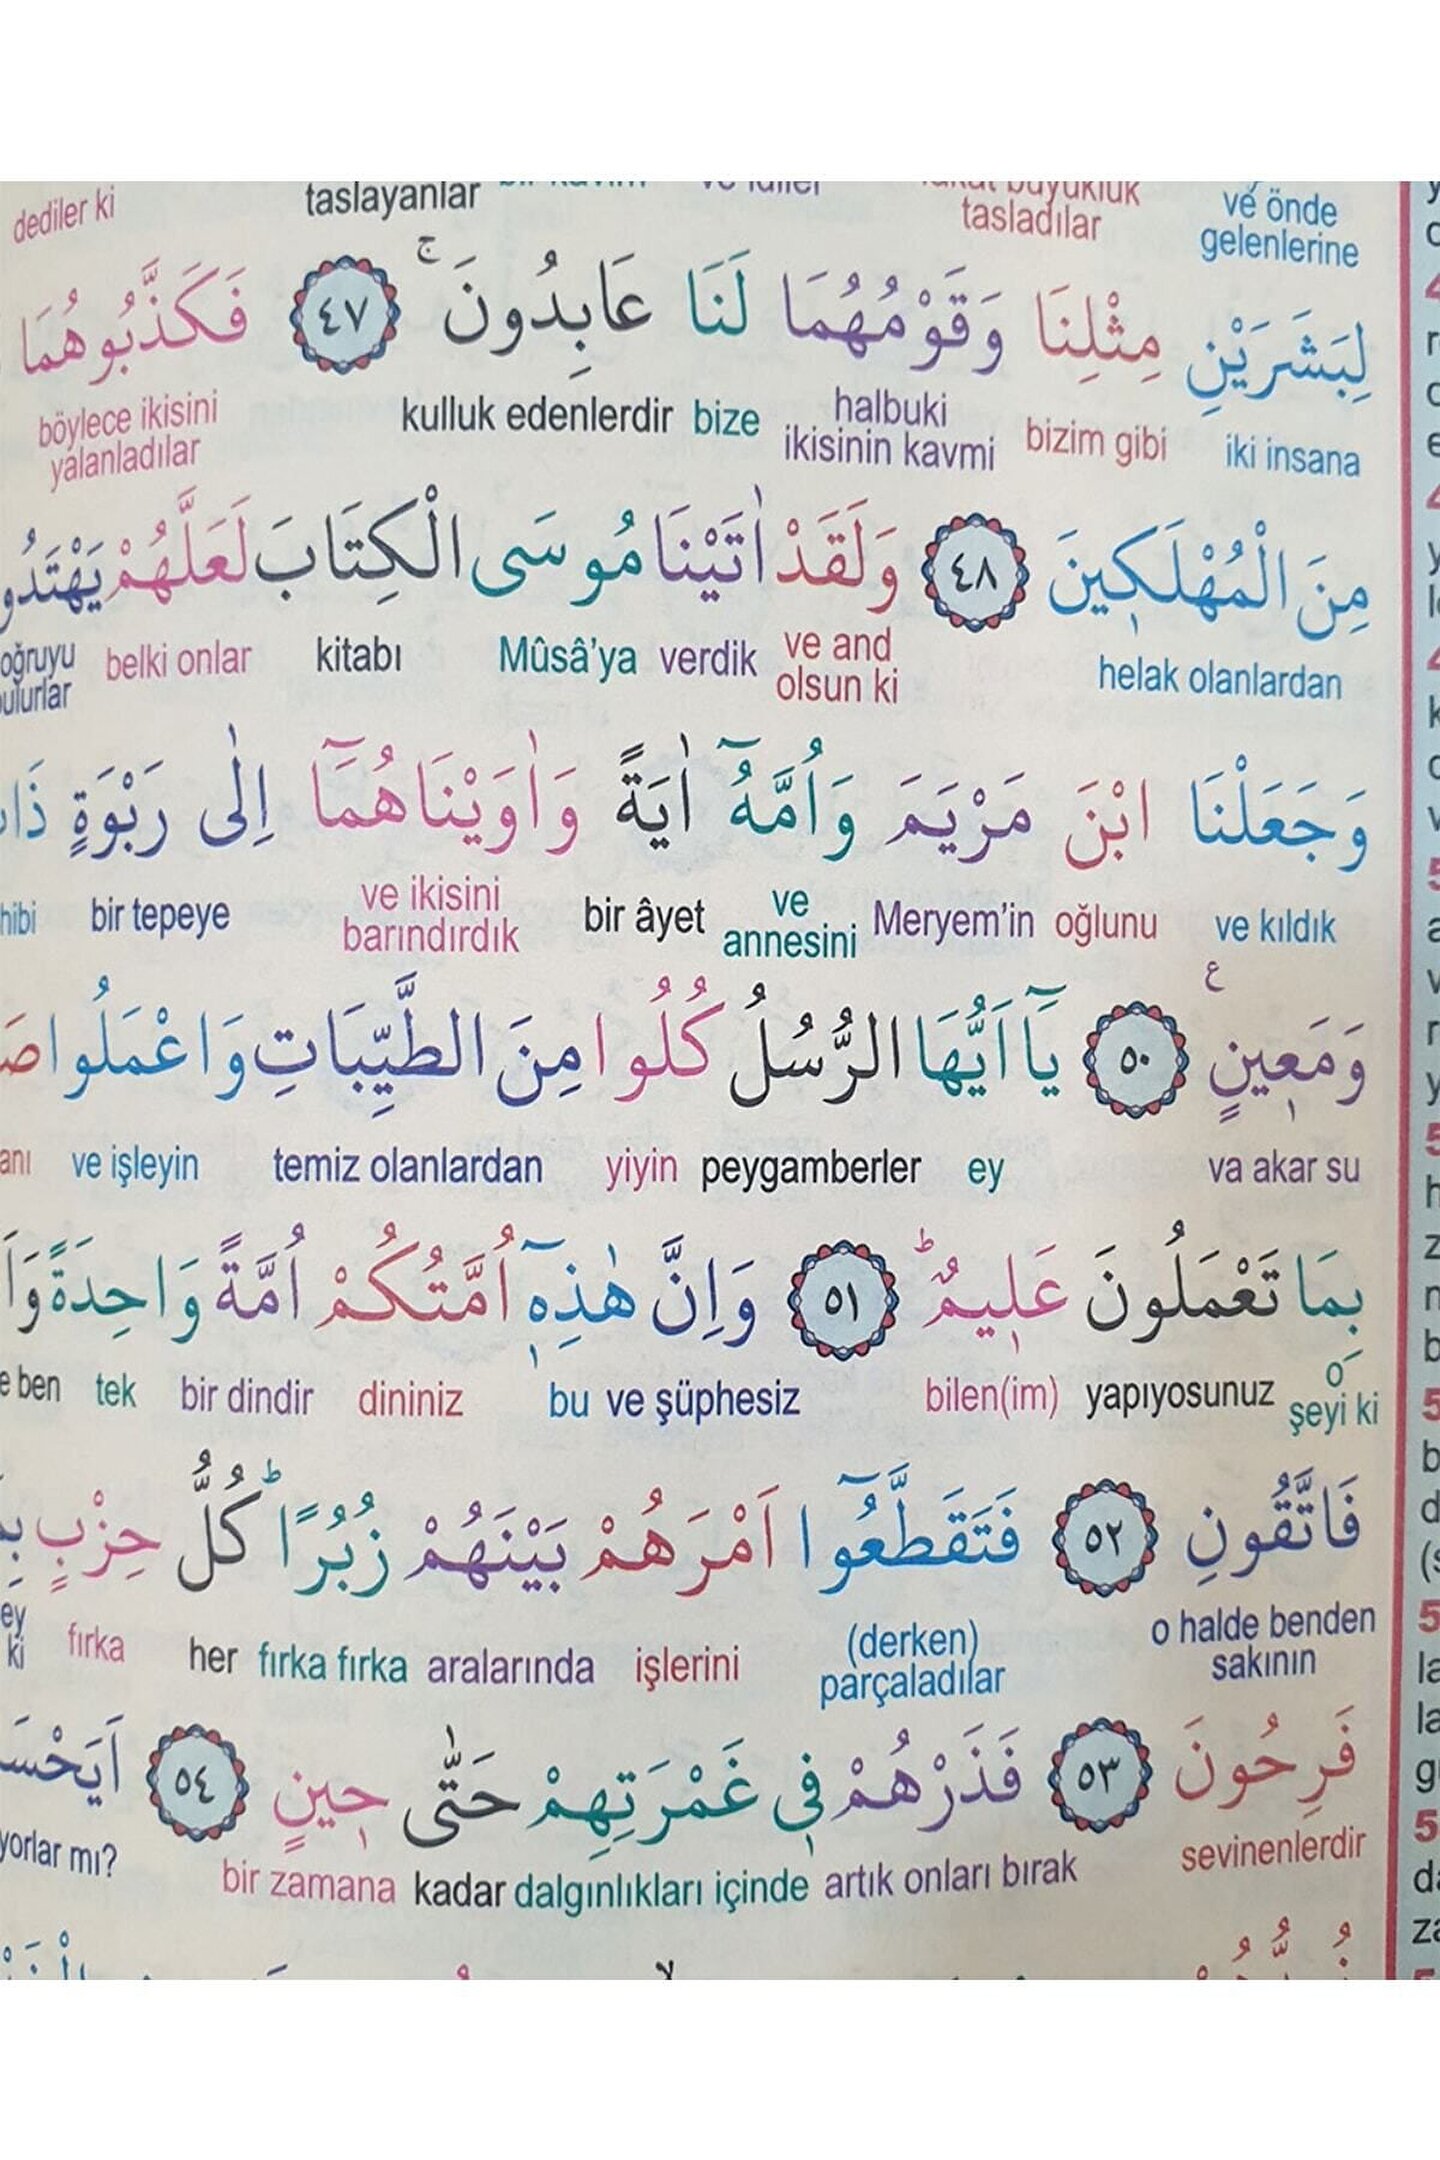 ve önde gelenlerine tasladılar taslayanlar dediler ki
لِبَشَرَيْنِ مِثْلِنَا وَقَوْمُهُمَا لَنَا عَابِدُونَۚ ٤٧ فَكَذَّبُوهُمَا
iki insana bizim gibi halbuki ikisinin kavmi bize kulluk edenlerdir böylece ikisini yalanladılar
مِنَ الْمُهْلَكٖينَ ٤٨ وَلَقَدْ اٰتَيْنَا مُوسَى الْكِتَابَ لَعَلَّهُمْ
helak olanlardan ve and olsun ki verdik Mûsâ'ya kitabı belki onlar
وَجَعَلْنَا ابْنَ مَرْيَمَ وَاُمَّهُٓ اٰيَةً وَاٰوَيْنَاهُمَٓا اِلٰى رَبْوَةٍ
ve kıldık oğlunu Meryem'in ve annesini bir âyet ve ikisini barındırdık bir tepeye
وَمَعٖينٍ ع ٥٠ يَٓا اَيُّهَا الرُّسُلُ كُلُوا مِنَ الطَّيِّبَاتِ وَاعْمَلُوا
va akar su ey peygamberler yiyin temiz olanlardan ve işleyin
بِمَا تَعْمَلُونَ عَلٖيمٌؕ ٥١ وَاِنَّ هٰذِهٖٓ اُمَّتُكُمْ اُمَّةً وَاحِدَةً
o şeyi ki yapıyosunuz bilen(im) ve şüphesiz bu dininiz bir dindir tek ben
فَاتَّقُونِ ٥٢ فَتَقَطَّعُٓوا اَمْرَهُمْ بَيْنَهُمْ زُبُرًاؕ كُلُّ حِزْبٍ
o halde benden sakının (derken) parçaladılar işlerini aralarında fırka fırka her fırka ki
فَرِحُونَ ٥٣ فَذَرْهُمْ فٖي غَمْرَتِهِمْ حَتّٰى حٖينٍ ٥٤
sevinenlerdir artık onları bırak dalgınlıkları içinde kadar bir zamana mı?